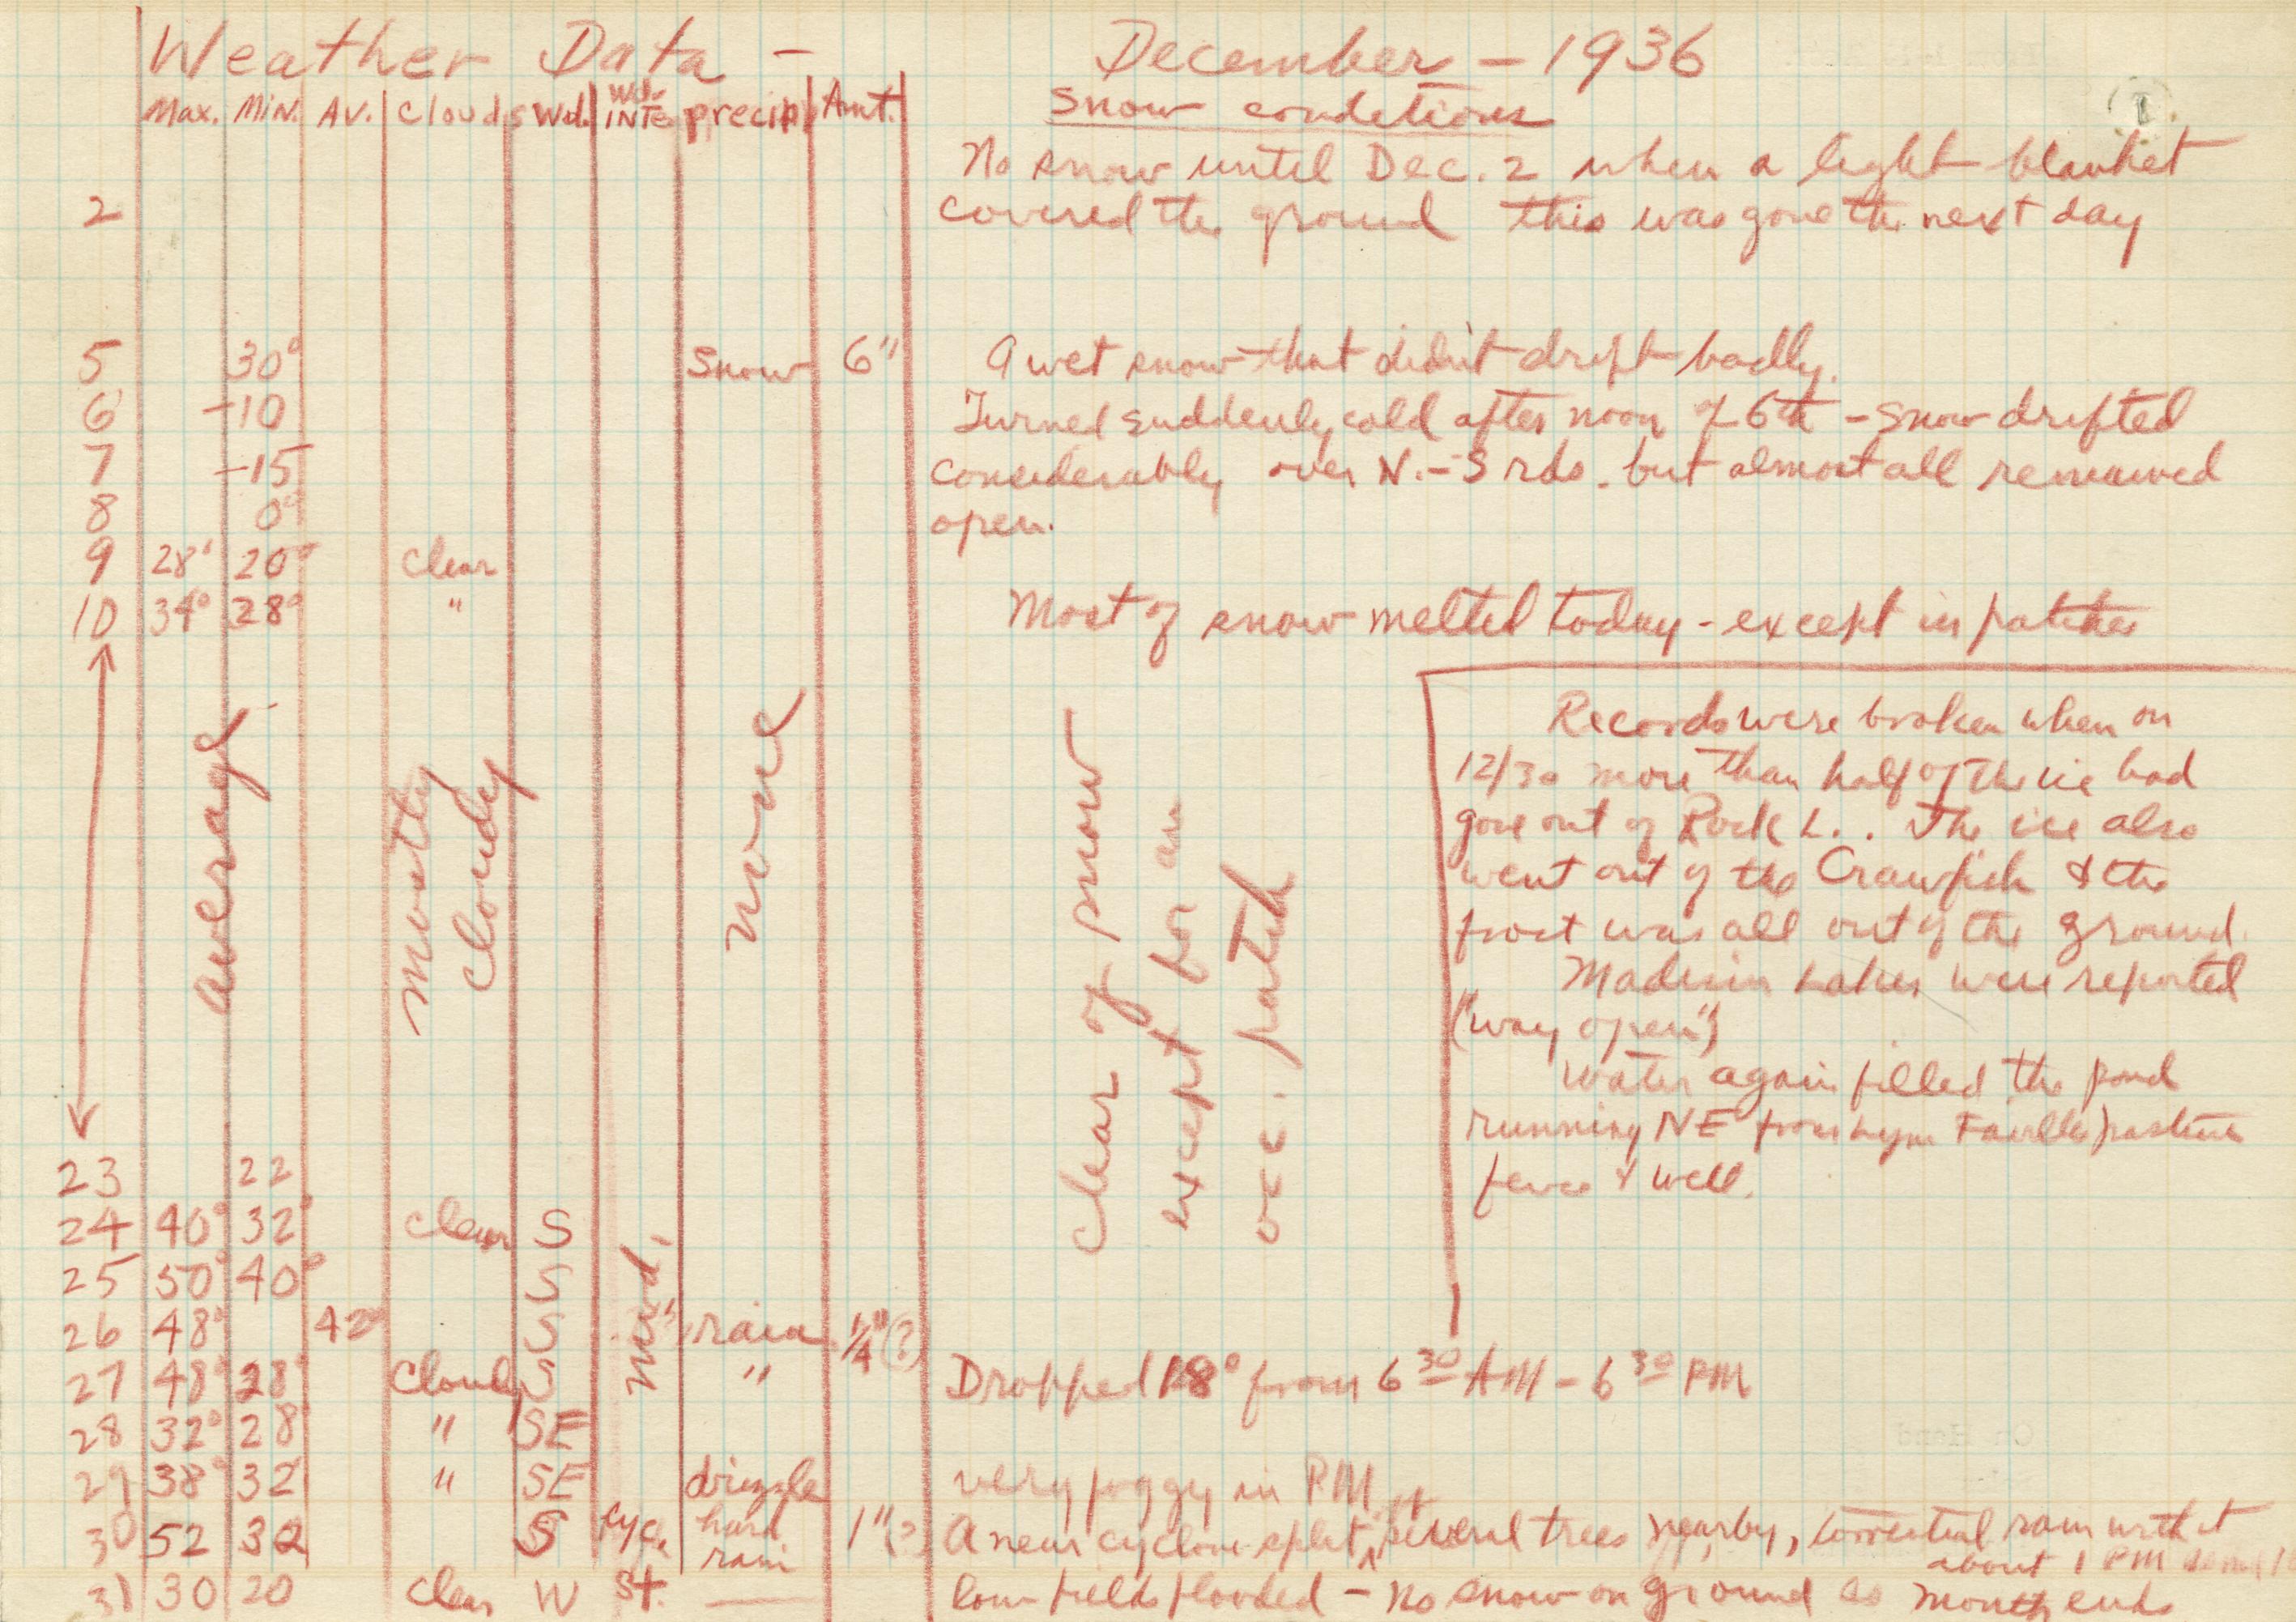 Weather Data - December - 1936
Max. Min. Av. Clouds Wd. Wd. INTE precip. Amt. Snow conditions
No snow until Dec. 2 when a light blanket
2 covered the ground this was gone the next day
5 30° Snow 6" A wet snow that didn't drift badly.
6 -10 Turned suddenly cold after noon of 6th - Snow drifted
7 -15 considerably over N.-S rds. but almost all remained
8 0° open.
9 28° 20° Clear
10 34° 28° " Most of snow melted today - except in patches
average
mostly
cloudy
none
clear of snow
except for an
occ. patch
Records were broken when on
12/30 more than half of the ice had
gone out of Rock L.. The ice also
went out of the Crawfish & the
frost was all out of the ground.
Madison Lakes were reported
("way open")
Water again filled the pond
running NE from pasture
fence & well.
23 22
24 40° 32° Clear S
25 50° 40° S
mod.
26 48° 42° S " rain 1/4" (?)
27 48° 28° Cloudy S " Dropped 18° from 6 30 AM - 6 30 PM
28 32° 28° " SE
29 38° 32 " SE drizzle very foggy in PM
30 52 32 S cyc. hard rain 1" (?) A near cyclone split several trees nearby, torrential rain with it
about 1 PM
31 30 20 Clear W St. — low fields flooded - No snow on ground as month ends